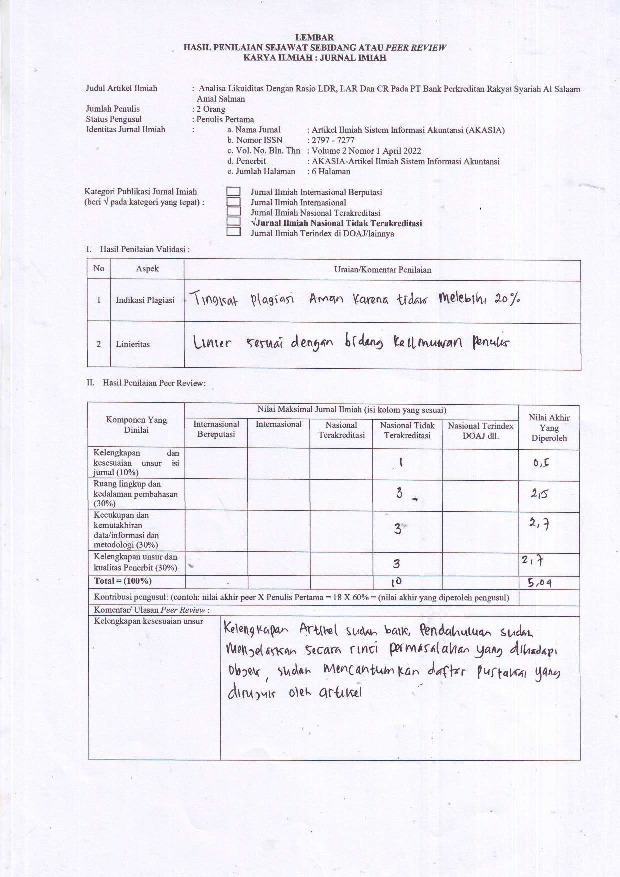 LEMBAR
HASIL PENILAIAN SEJAWAT SEBIDANG ATAU PEER REVIEW
KARYA ILMIAH : JURNAL IMIAH
Judul Artikel Ilmiah : Analisa Likuiditas Dengan Rasio LDR, LAR Dan CR Pada PT Bank Perkreditan Rakyat Syariah Al Salaam
Amal Salman
Jumlah Penulis : 2 Orang
Status Pengusul : Penulis Pertama
Identitas Jurnal Ilmiah : a. Nama Jurnal : Artikel Ilmiah Sistem Informasi Akuntansi (AKASIA)
b. Nomor ISSN : 2797 - 7277
c. Vol. No. Bln. Thn : Volume 2 Nomor 1 April 2022
d. Penerbit : AKASIA-Artikel Ilmiah Sistem Informasi Akuntansi
e. Jumlah Halaman : 6 Halaman
Kategori Publikasi Jurnal Imiah Jurnal Ilmiah Internasional Berputasi
(beri √ pada kategori yang tepat) : Jurnal Ilmiah Internasional
Jurnal Ilmiah Nasional Terakreditasi
√Jurnal Ilmiah Nasional Tidak Terakreditasi
Jurnal Ilmiah Terindex di DOAJ/lainnya
I. Hasil Penilaian Validasi :
No Aspek Uraian/Komentar Penilaian
1 Indikasi Plagiasi Tingkat plagiasi Aman karena tidak melebihi 20%
2 Linieritas Linier sesuai dengan bidang keilmuwan penulis
II. Hasil Penilaian Peer Review:
Komponen Yang Dinilai
Nilai Maksimal Jurnal Ilmiah (isi kolom yang sesuai)
Nilai Akhir Yang Diperoleh
Internasional Bereputasi Internasional Nasional Terakreditasi Nasional Tidak Terakreditasi Nasional Terindex DOAJ dll.
Kelengkapan dan
kesesuaian unsur isi 1
jurnal (10%)
Ruang lingkup dan
kedalaman pembahasan 3 2,5
(30%)
Kecukupan dan
kemutakhiran 3 2,7
data/informasi dan
metodologi (30%)
Kelengkapan unsur dan
kualitas Penerbit (30%) 3 2,7
Total = (100%) 10
Kontribusi pengusul: (contoh: nilai akhir peer X Penulis Pertama = 18 X 60% = (nilai akhir yang diperoleh pengusul)
Komentar/ Ulasan Peer Review :
Kelengkapan kesesuaian unsur Kelengkapan Artikel sudah baik, Pendahuluan sudah
menjelaskan secara rinci permasalahan yang dihadapi
objek, sudah mencantumkan daftar pustaka yang
dirujuk oleh artikel